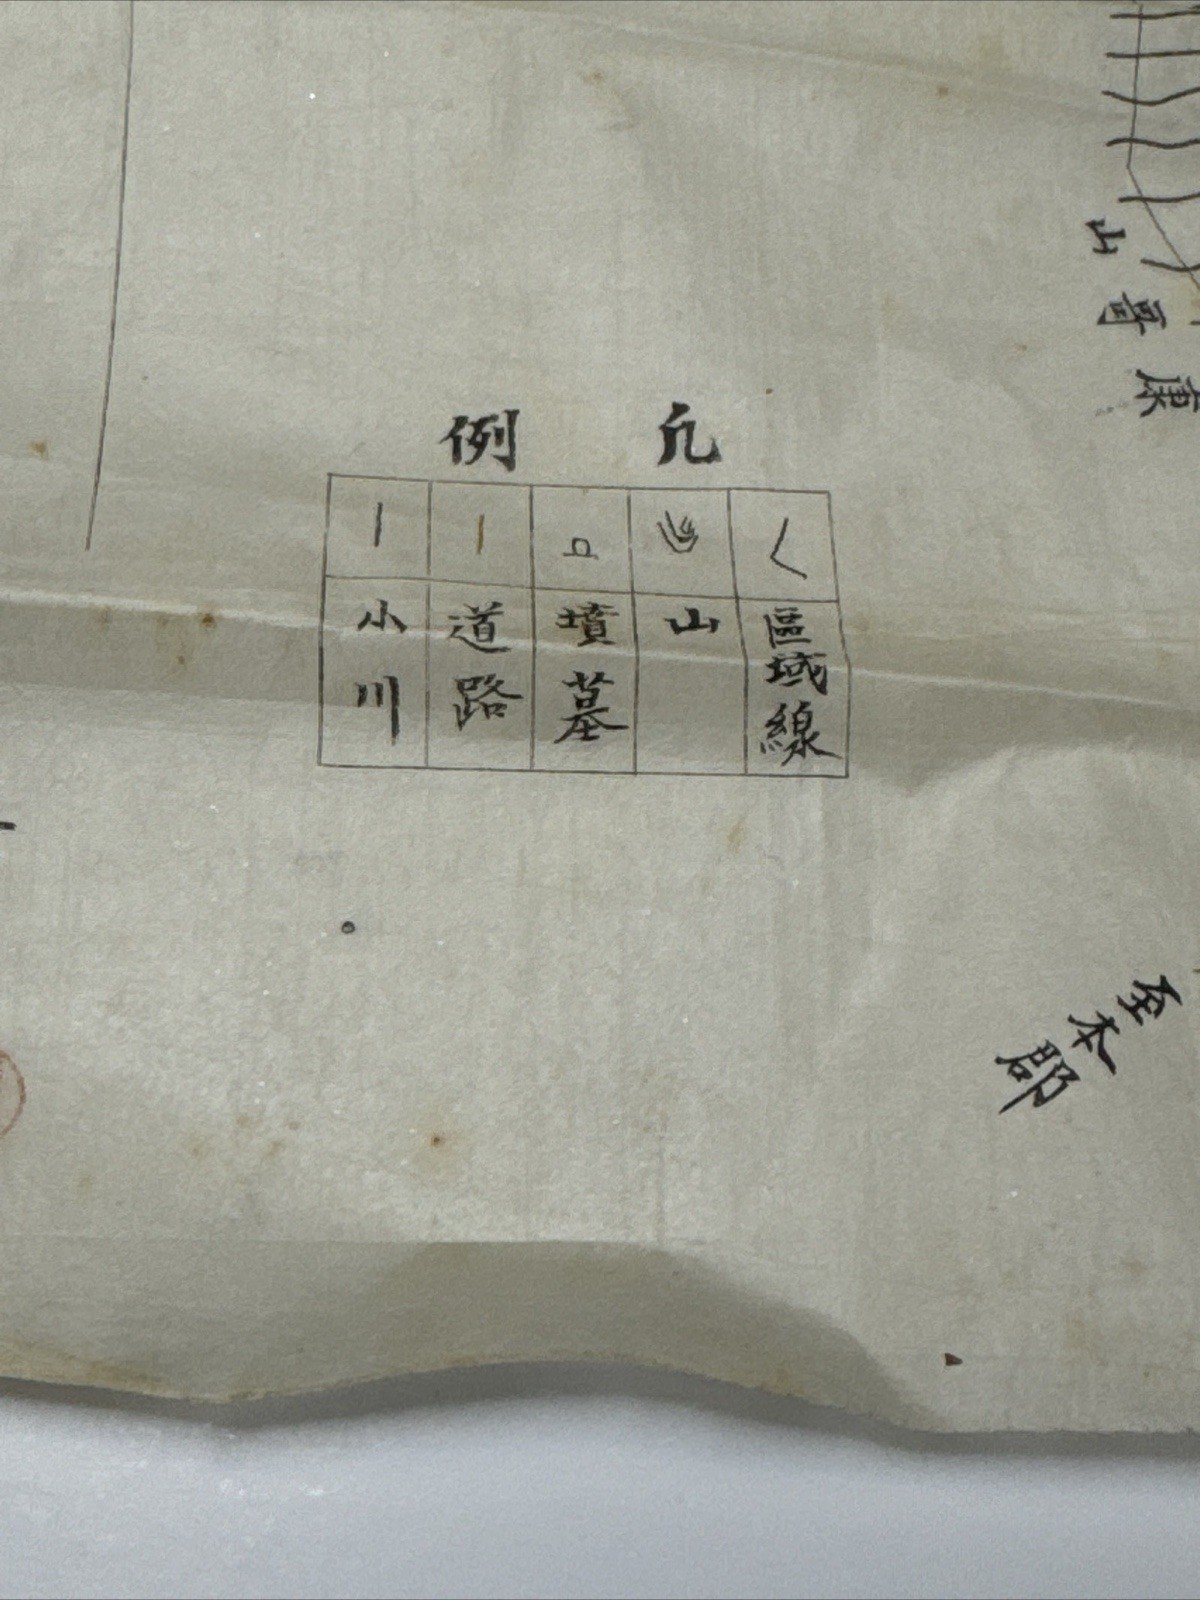 凡例
區域線
山
墳墓
道路
小川
至本郡
康哥山